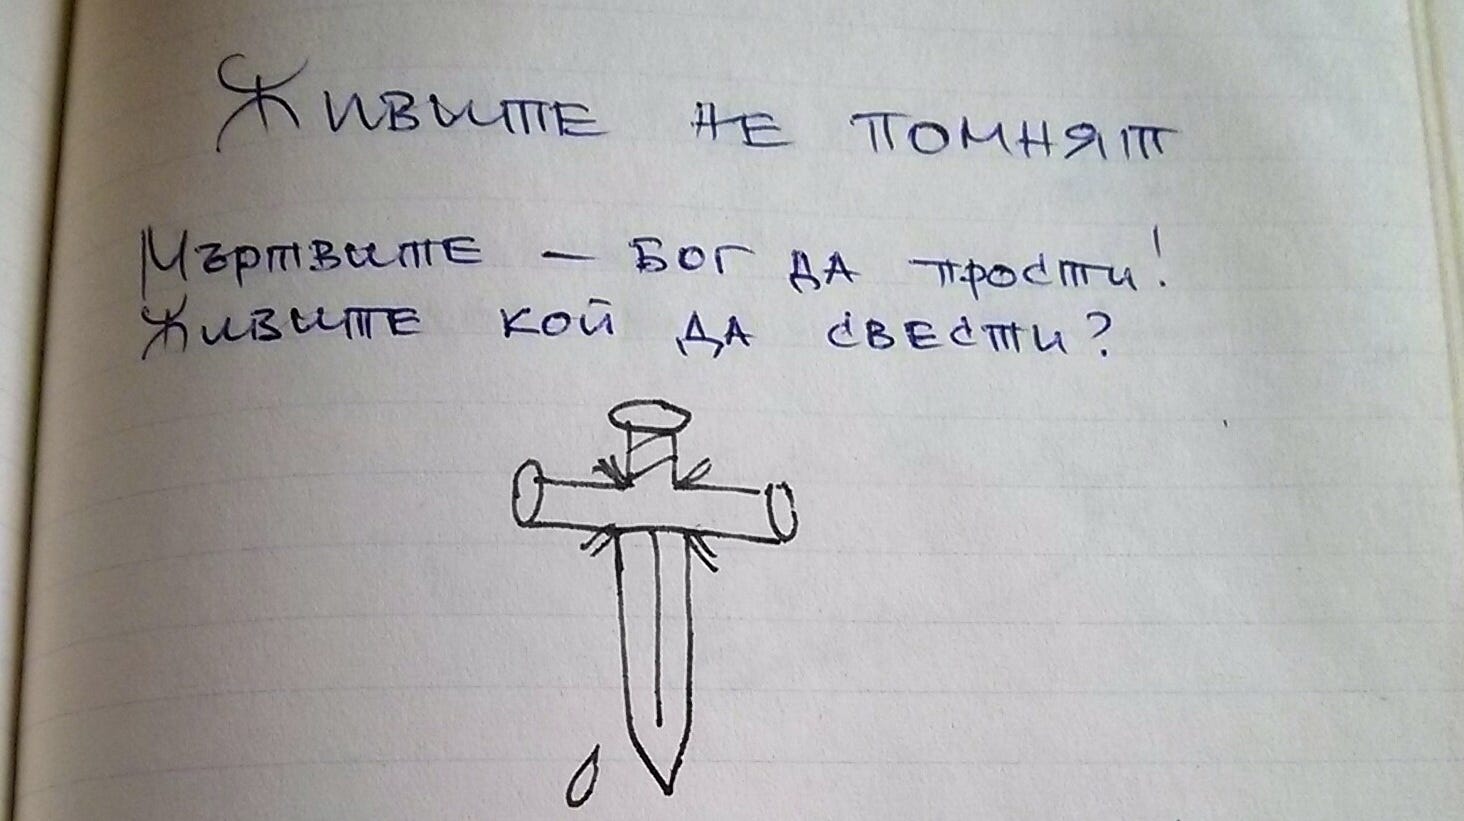 Живите не помнят
Мъртвите — Бог да прости!
Живите кой да свести?